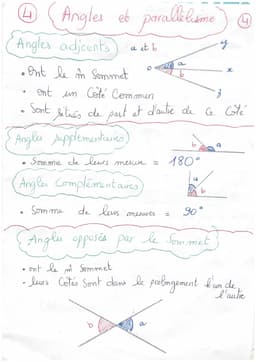 4 Angles et parallélisme 4
Angles adjacents a et b
• Ont le m̂ sommet
• ont un Côté Commun
• Sont situés de part et d'autre de Ce Côté
y
o a x
b
z
Angles supplémentaires
b a
• Somme de leurs mesures = 180°
Angles Complémentaires
a
b
• Somme de leurs mesures = 90°
Angles opposés par le Sommet
• ont le m̂ sommet
• leurs Côtés Sont dans le prolongement l'un de
l'autre
b a